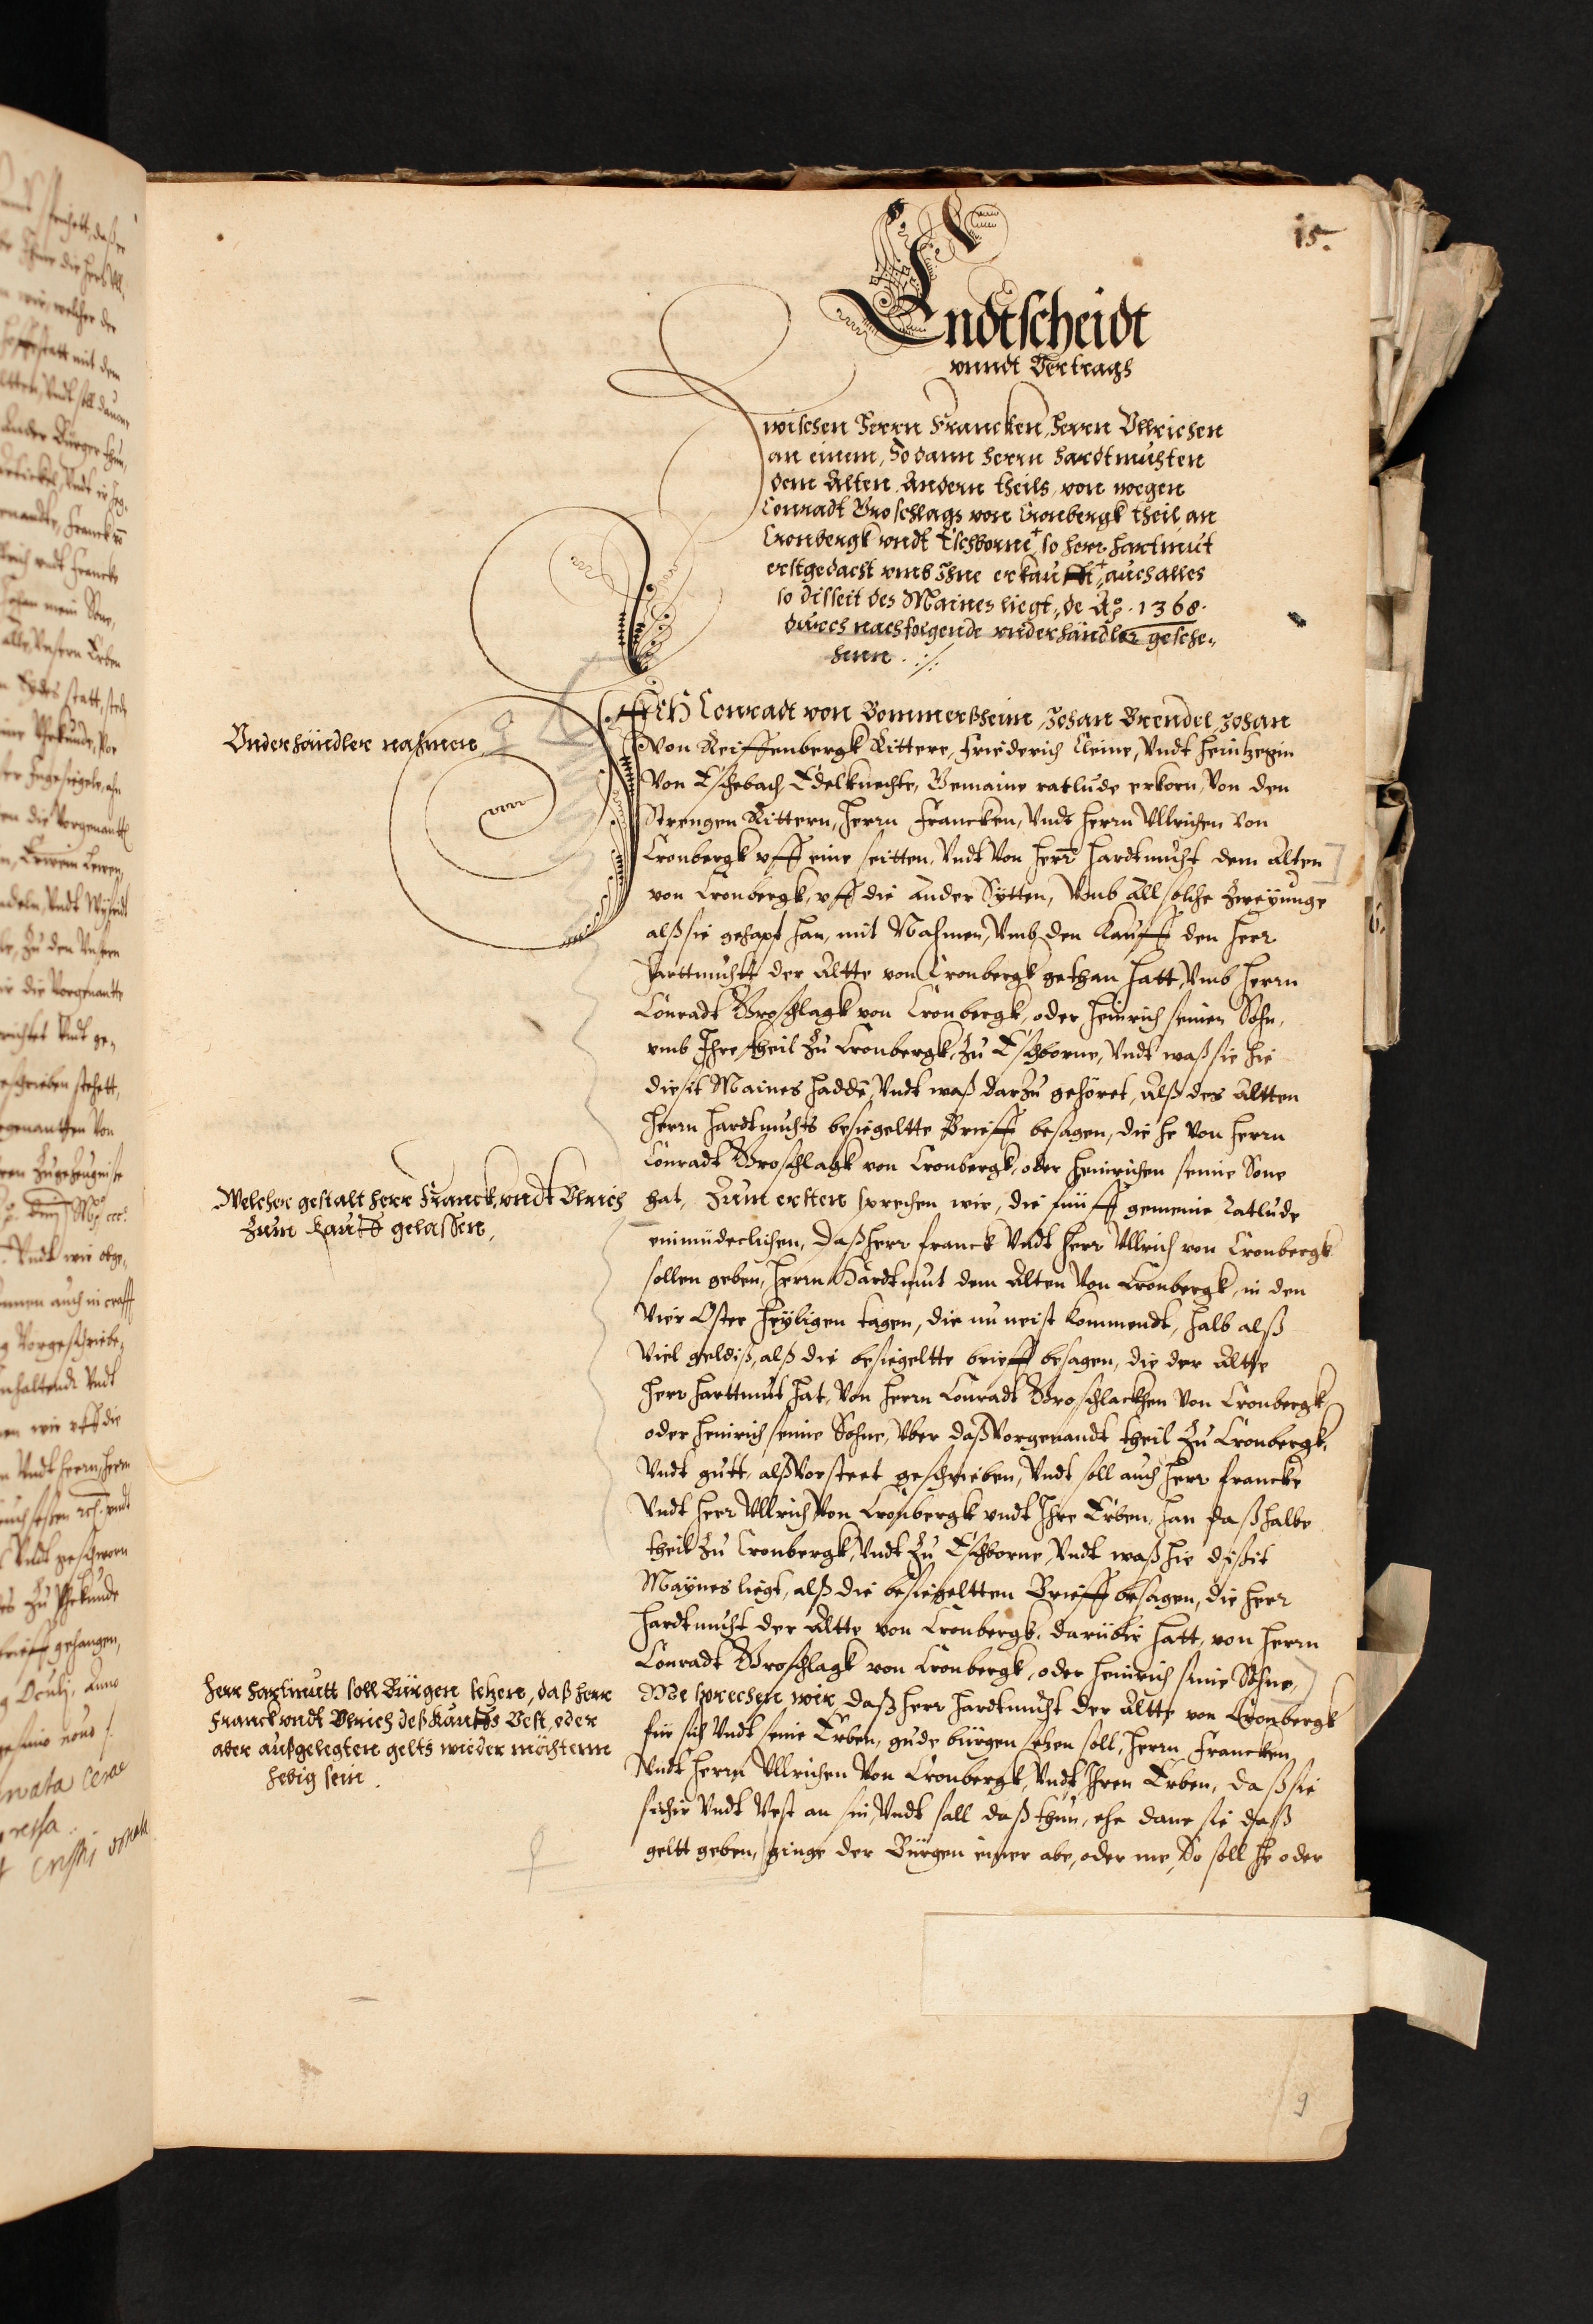 15.
Endtscheidt
vnndt Vertrachs
Zwischen Herrn Francken, Herrn Vllrichen
an einem, So dann Herrn Hardtmuhten
dem Alten Andern theils, von wegen
Conradt Groschlags von Cronbergk theil an
Cronbergk vndt Eschborne, so herr Hartmut
erstgedacht vmb Ihne erkaufft, auch alles
so disseit des Maines liegt, de Aº. 1368.
durch nachfolgende vnderhändler gesche„
henn.
Ich Conradt von Bommerßheim, Johan Brendel, Johan
Von Reiffenbergk Rittere, Friederich Cleine, Vndt Heintzegin
Von Eschebach Edelknechte, Gemaine ratlude erkorn, Von den
Strengen Rittern, Herrn Francken, Vndt Herrn Vllrichen Von
Cronbergk vff eine seitten, Vndt Von Herr Hardtmuht dem Alten
von Cronbergk, vff die Ander Sytten, Vmb all solche Zweyunge
alß sie gehapt han, mit Nahmen, Vmb den Kauff den Herr
Harttmuht der Altte von Cronbergk gethan hatt, Vmb Herrn
Conradt Groschlagk von Cronbergk, oder Heinrich seinen Sohn,
vmb Ihre theil Zu Cronbergk, Zu Eschborne, Vndt waß sie hie
diesit Maines hadde, Vndt waß darzu gehöret, Alß des Altten
Herrn Hardtmuhts besiegeltte Brieff besagen, die he Von Herrn
Conradt Groschlagk von Cronbergk, oder Heinrichen seine Sone
hat, Zum ersten sprechen wir, die fünff gemeine ratlude
einmüdeclichen, Daß herr Franck Vndt Herr Vllrich von Cronbergk
sollen geben, Herrn Hardtmut dem Alten Von Cronbergk, in den
Vier Oster Heyligen tagen, die nu neist Kommendt, halb alß
Viel geldiß, alß die besiegeltte brieff besagen, die der Altte
Herr Harttmut hat, Von Herrn Conradt Groschlackhen Von Cronbergk,
oder Heinrich seine Sohne, Vber daß Vorgenandt theil Zu Cronbergk,
Vndt gutt, alß Vorsteet geschrieben, Vndt soll auch Herr Francke
Vndt Herr Vllrich Von Cronbergk vndt Ihre Erben, han daß halbe
theil Zu Cronbergk, Vndt Zu Eschborne, Vndt waß hie dißit
Maynes liegt, alß die besiegeltten Brieff besagen, die Herr
Hardtmuht der Altte von Cronbergk, darübir hatt, von Herrn
Conradt Groschlagk von Cronbergk, oder Heinrich seine Sohne,
Me sprechen wir, daß Herr Hardtmuht der Altte von Cronbergk
für sich Vndt seine Erben, gude bürgen setzen soll, Herrn Francken
Vndt Herrn Vllrichen Von Cronbergk, Vndt Ihren Erben, daß sie
sicher Vndt Vest an sin, Vndt sall daß thun, ehe dane sie daß
geltt geben, ginge der Bürgen einer abe, oder me, So soll he oder
Vnderhändler nahmen
Welcher gestalt herr Franck, vndt Vlrich
Zum Kauff gelassen,
Herr Hartmutt soll Bürgen setzen, daß herr
Franck vndt Vlrich deß Kauffs Vest, oder
aber außgelegten gelts wieder möchtenn
hebig sein.
9